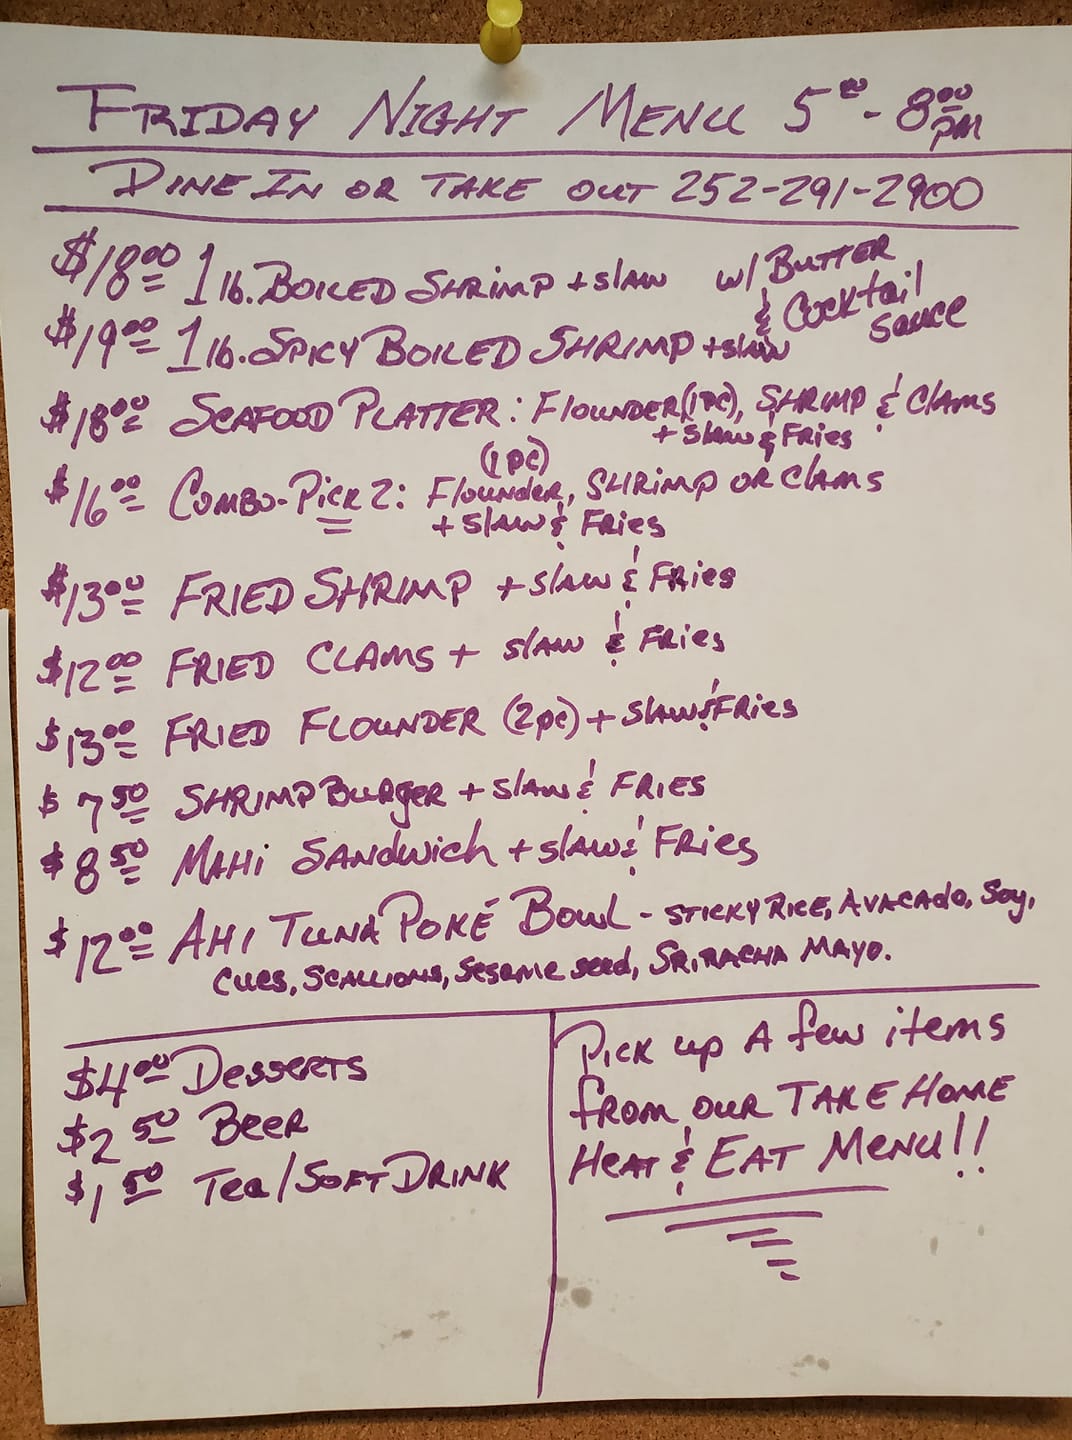 FRIDAY NIGHT MENU 5⁰⁰ - 8⁰⁰ PM
DINE IN OR TAKE OUT 252-291-2900
$18⁰⁰ 1 lb. BOILED SHRIMP + slaw w/ BUTTER & Cocktail Sauce
$19⁰⁰ 1 lb. SPICY BOILED SHRIMP + slaw
$18⁰⁰ SEAFOOD PLATTER: Flounder (1pc), SHRIMP & Clams
+ Slaw & Fries
$16⁰⁰ COMBO-PICK 2: Flounder (1pc), SHRIMP OR Clams
+ Slaw & Fries
$13⁰⁰ FRIED SHRIMP + slaw & FRies
$12⁰⁰ FRIED CLAMS + slaw & FRies
$13⁰⁰ FRIED FLOUNDER (2pc) + Slaw & FRies
$7⁵⁰ SHRIMP BURgER + Slaw & FRIES
$8⁵⁰ MAHi SANDwich + slaw & FRies
$12⁰⁰ AHI TUNA POKÉ BOWL - STICKY RICE, AVACADO, Soy,
Cues, SCALLIONS, Sesame seed, SRIRACHA MAYO.
$4⁰⁰ DESSERTS
$2⁵⁰ BEER
$1⁵⁰ Tea/SOFT DRINK
Pick up A few items
from our TAKE HOME
HEAT & EAT MENU!!